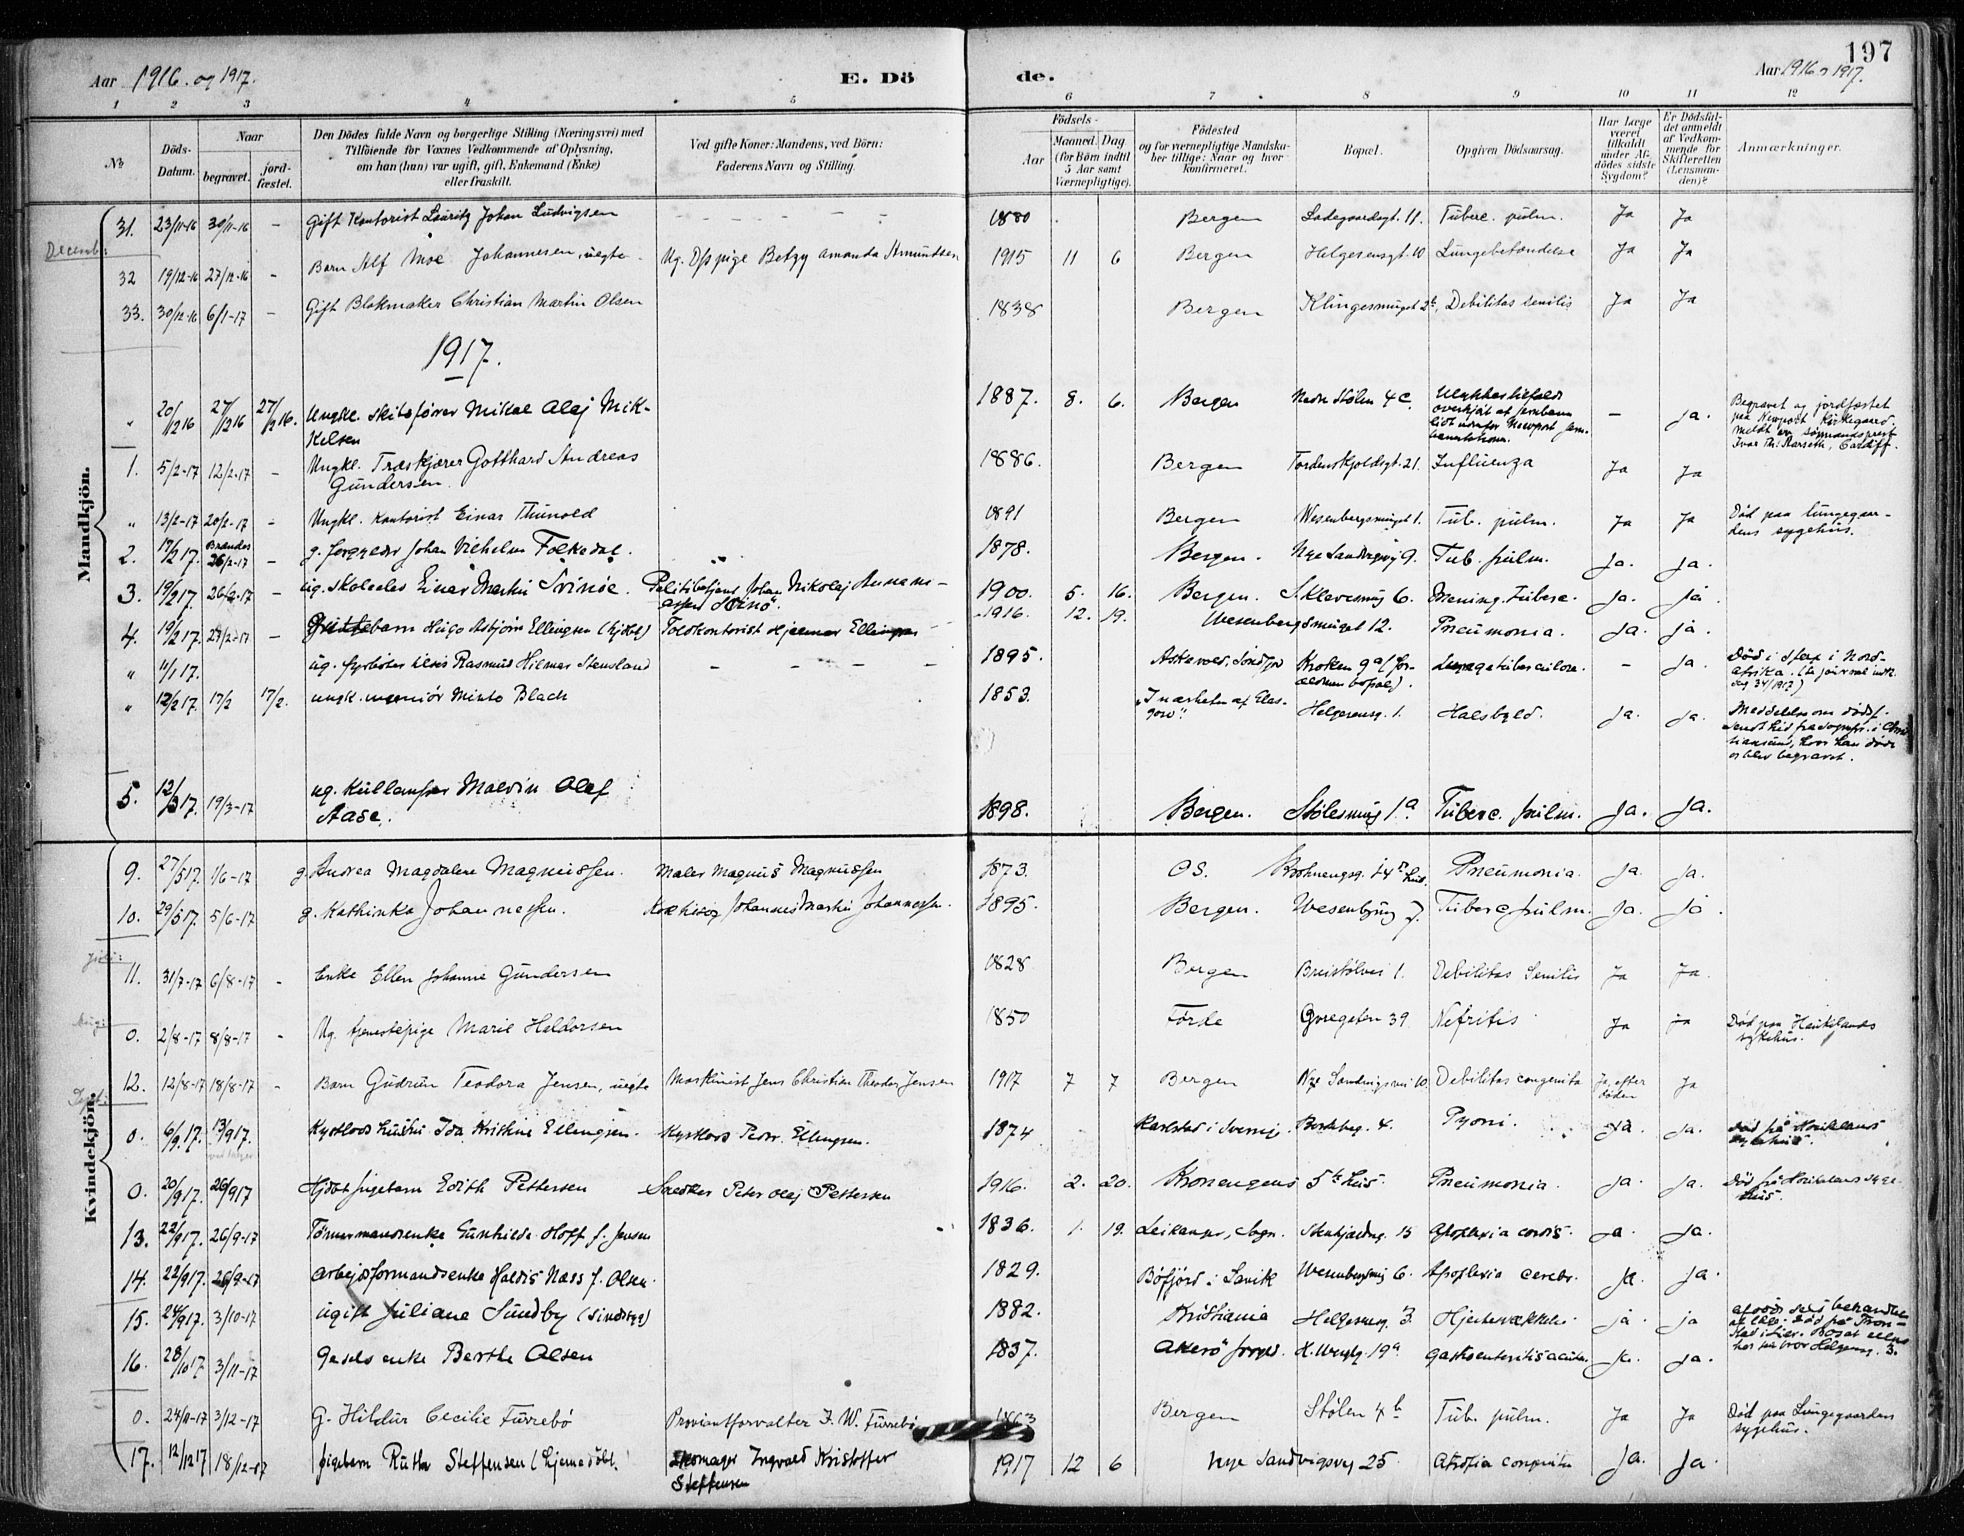 197
Aar 1916. og 1917.
E. Döde.
Aar 1916 og 1917.
1 2 3 4 5 6 7 8 9 10 11 12
No
Döds-Datum.
Naar
begravet.
jordfæstet.
Den Dödes fulde Navn og borgerlige Stilling (Næringsvei) med
Tilföiende for Voxnes Vedkommende af Oplysning,
om han (hun) var ugift, gift, Enkemand (Enke)
eller fraskilt.
Ved gifte Koner: Mandens, ved Börn:
Faderens Navn og Stilling.
Födsels-
Aar
Maaned. Dag
(for Börn indtil
5 Aar samt
Værnepligtige).
Födested
og for værnepligtige Mandskaber tillige: Naar og hvor
konfirmeret.
Bopæl.
Opgiven Dödsaarsag.
Har Læge
været
tilkaldt
under Afdödes sidste
Sygdom?
Er Dödsfaldet anmeldt
af Vedkommende for
Skifteretten
(Lensmanden)?
Anmærkninger.
Mandkjön.
31. 23/11-16 30/11-16 - Gift Kontorist Lauritz Johan Ludvigsen - - - - 1880 Bergen Ladegaardsgt. 11. Tuberc. pulm. Ja Ja
Decembr:
32 19/12-16 27/12-16 - Barn Alf Moe Johannesen, uegte. Ug. Pige Betzy Amanda Amundsen 1915 11 6 Bergen Helgesensgt. 10 Lungebetændelse Ja Ja
33. 30/12-16 6/1-17 - Gift Blokmaker Christian Martin Olsen 1838 Bergen Klingesmuget 2b, Debilitas senilis Ja Ja
1917.
" 20/12 16 27/12 16 27/12 16. Ungkl. Skibsfører Mikal Olaj Mikkelsen 1887. 8. 6. Bergen Nedre Stølen 4c. Ulykkestilfælde overkjørt af jernbane - ja. Begravet og jordfæstet paa Newport Kirkegaard. meldt av sømandsprest Ivar Th: Aarseth, Cardiff.
1. 5/2-17 12/2-17 - Ungkl. Træskjærer Gotthard Andreas Gundersen. 1886. Bergen Tordenskjoldsgt. 21. Influenza Ja Ja
" 13/2-17 20/2-17 - Ungkl. Kontorist Einar Thunold 1891 Bergen Wesenbergsmuget 1. Tub. pulm. Ja Ja Død paa Lungegaardens sygehus.
2. 17/2 17. Brændes 26/2-17 - g. Johan Vilhelm Folkedal. " 1878. Bergen. Nye Sandvigsvej 9. Tub. pulm. Ja. Ja.
3. 19/2 17. 26/2-17 - ug. Skoleelev Einar Martin Svinøe. Politibetjent Johan Nikolaj Svinø. 1900. 5. 16. Bergen. S. Klevesmug 6. Mening. Tuberc. Ja. ja
4. 19/2 17. 27/2-17 - Guttebarn Hugo Asbjørn Ellingsen (hjdbt) Toldkontorist Hjalmar Ellingsen 1916. 12. 19. Wesenbergsmuget 12. Pneumonia. Ja. ja.
" 11/1 17. ug. fyrbøter Rasmus Hilmar Stensland - - - - 1895. Kroken 9a (forældrenes bopæl). Lungetuberculose. - ja. Død i Sfax i Nord-Afrika.
" 12/2 17. 17/2 17/2. ungk. Minto Blach 1853. "I nærheten af Glasgow" Helgesensg. 1. Halsbyld. Ja. ja. Meddelelse om dødsf. sendt hid fra sognepr. i Christiansund, hvor han døde og blev begravet.
5. 12/3 17. 19/3-17 ug. Malvin Olaf Aase. 1898. Bergen. Stølesmug 1a Tuberc. pulm. Ja. Ja.
Kvindekjön.
9. 27/5 17. 1/6-17 g. Andrea Magdalene Magnussen. Maler Magnus Magnussen 1873. OS. Pneumonia. Ja. Ja.
10. 29/5 17. 5/6-17 g. Kathinka Johannessen. Johannes Martin Johannessen. 1895. Bergen. Wesenbgmug 7. Tuberc. pulm. Ja. ja.
Juli:
11. 31/7-17 6/8-17 - Enke Ellen Johanne Gundersen 1828 Bergen Breistølvei 1. Debilitas Senilis Ja Ja.
Aug:
0. 2/8-17 8/8-17 - Ug. tjenestepige Marie Haldorsen 1850 Førde Øvregaten 39 Nefritis Ja ja Død paa Haukelands sykehus.
12. 12/8-17 18/8-17 - Barn Gudrun Teodora Jensen, uegte Maskinist Jens Christian Theodor Jensen 1917 7 7 Bergen Nye Sandvigsvei 10. Debilitas congenita Ja, efter døden Ja
Sept:
0. 6/9 17. 13/9 17. Kystlods hustru Ida Kristine Ellingsen. Kystlods Pedr. Ellingsen. 1874 Karlstad i Sverige Pyomi. Ja. Ja. Død på Haukelands sygehus.
0. 20/9 17. 26/9 17 Hjdbt pigebarn Edith Pettersen Snedker Peter Olaj Pettersen 1916. 2. 20. Kronengens 5te hus Pneumonia. Ja. Ja. Død på Haukelands sygehus.
13. 22/9 17. 26/9-17 Tømmermandsenke Gunhilde Hoff f. Jensen 1836. 1. 19. Leikanger, Sogn. 15 Apoplexia cordis. Ja. Ja.
14. 22/9 17. 26/9-17 Arbejdsformandsenke Haldis Næss f. Olsen. 1829. Wesenbergsmug 6. Apoplexia cerebr. Ja. Ja.
15. 24/9 17. 3/10-17 ugift Juliane Sundby (sindssyg) 1882. Kristiania Helgesensg. 3. Hjerteonde ja ja
16. 28/10 17. 3/11-17 Gesels enke Berthe Olsen 1837. Akerø 19a Gastroenteritis acuta. Ja. Ja.
0. 24/11-17 3/12-17 G. Hildur Cecilie Furrebø Proviantforvalter J. W. Furrebø Bergen Stølen 4b Tub. pulm. Ja Ja Død paa Lungegaardens sygehus.
17. 12/12 17 18/12-17 pigebarn Ruth Steffensen (hjemmedøbt. Skomager Ingvald Kristoffer Steffensen 1917 12 6 Nye Sandvigsvej 25. Atrofia congenita Ja. Ja.